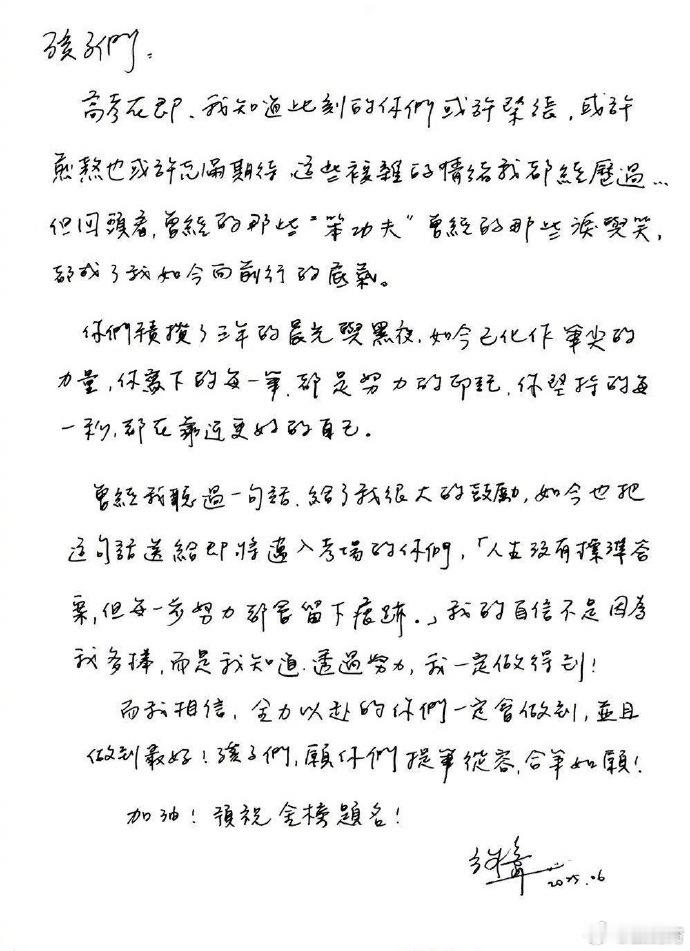 孩子們：
高考在即、我知道此刻的你們或許緊張，或許
煎熬也或許充滿期待、這些複雜的情緒我都經歷過…
但回頭看，曾經的那些“笨功夫”曾經的那些淚與笑，
都成了我如今向前行的底氣。
你們積攢了三年的晨光與黑夜，如今已化作筆尖的
力量，你寫下的每一筆，都是努力的印記，你堅持的每
一秒，都在靠近更好的自己。
曾經我聽過一句話、給了我很大的鼓勵，如今也把
這句話送給即將邁入考場的你們，「人生沒有標準答
案，但每一步努力都會留下痕跡．」我的自信不是因為
我多棒，而是我知道．透過努力，我一定做得到！
而我相信，全力以赴的你們一定會做到，並且
做到最好！孩子們，願你們提筆從容，合筆如願！
加油！預祝金榜題名！
2025.06